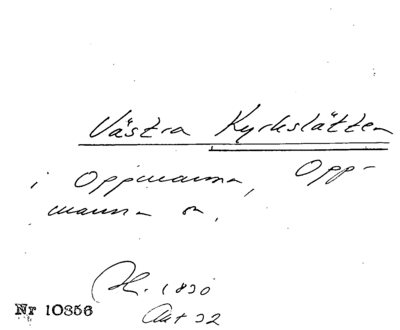 Västra Kyrkslätten
i Oppmanna, Opp-
manna sn,
1830
Akt 32
Nr 10356